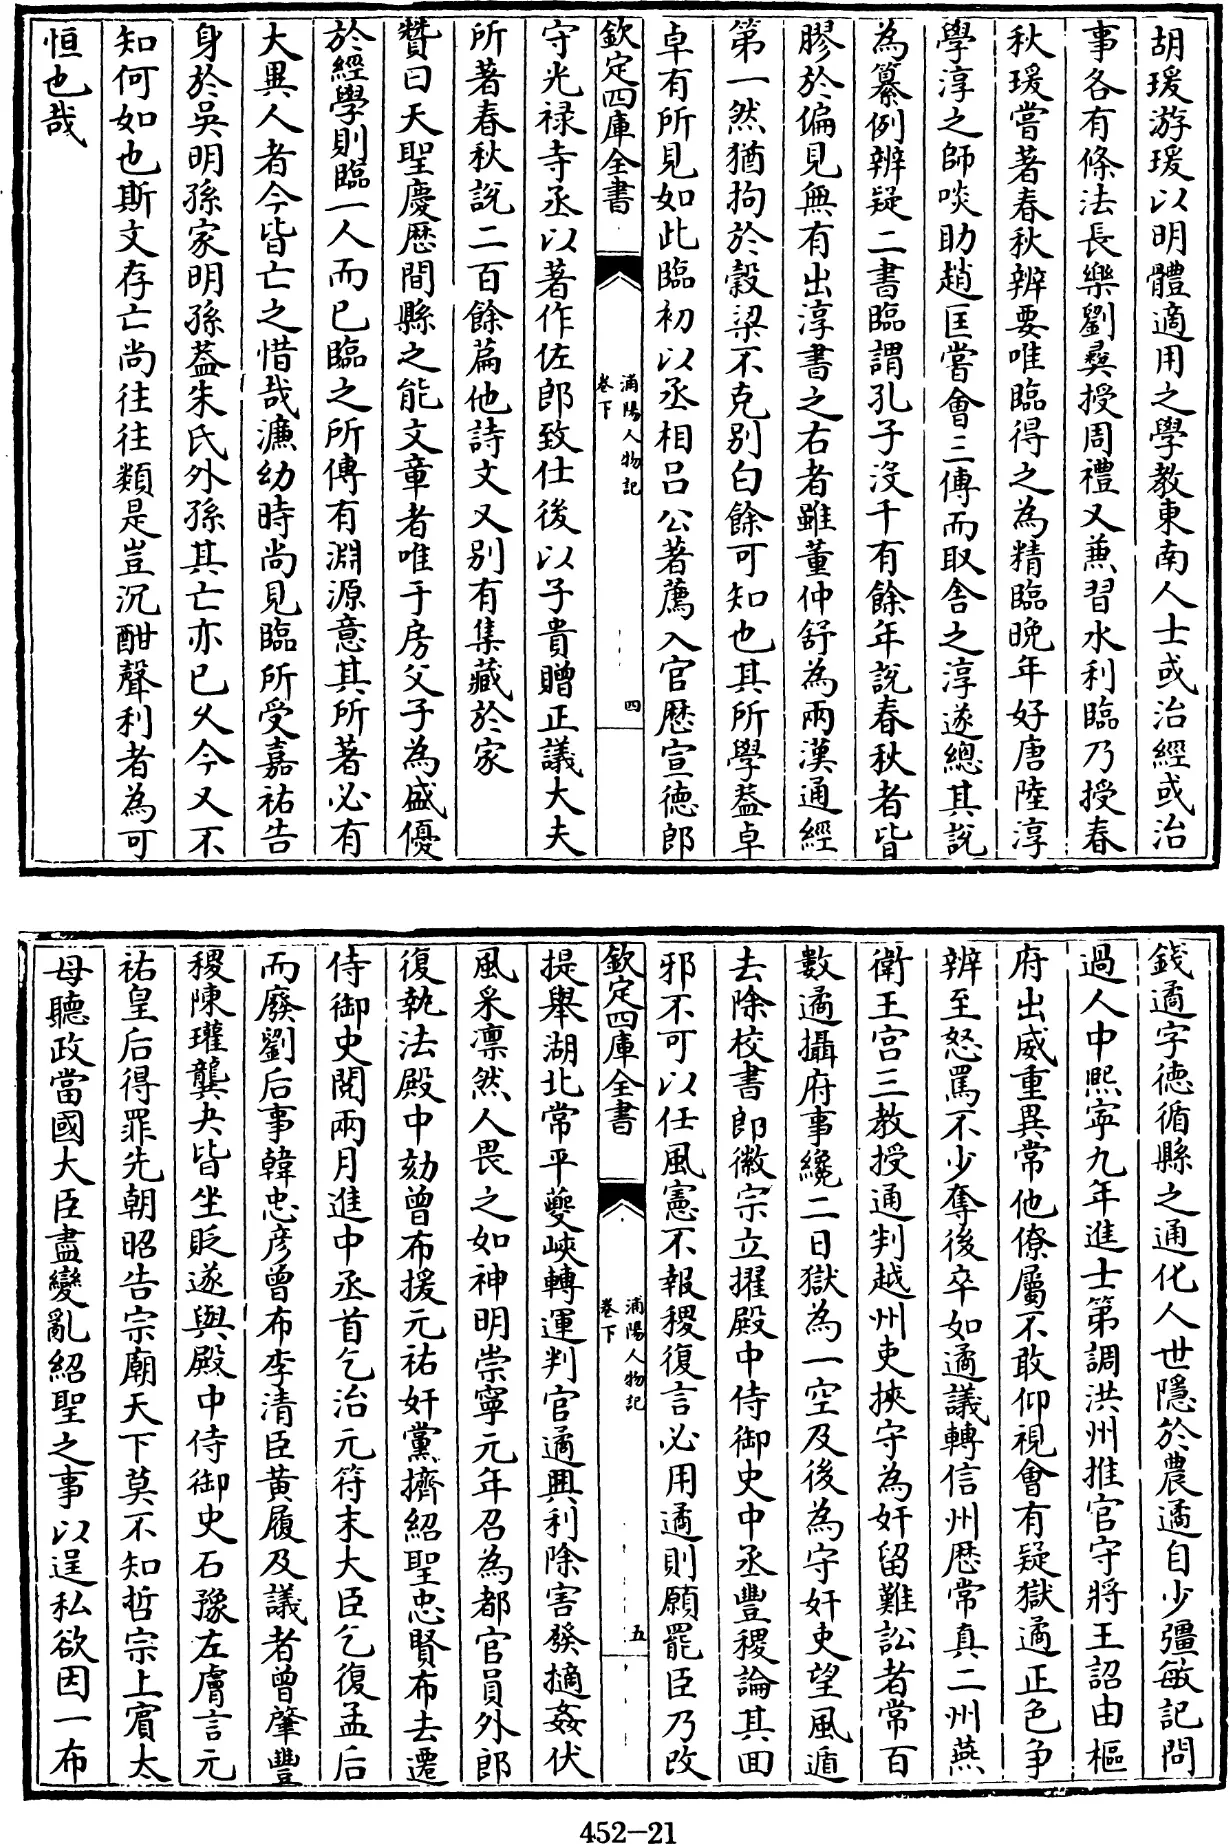 胡瑗游瑗以明體適用之學教東南人士或治經或治
事各有條法長樂劉彛授周禮又兼習水利臨乃授春
秋瑗嘗著春秋辨要唯臨得之為精臨晚年好唐陸淳
學淳之師啖助趙匡嘗會三傳而取舍之淳遂總其說
為纂例辨疑二書臨謂孔子沒千有餘年說春秋者皆
膠於偏見無有出淳書之右者雖董仲舒為兩漢通經
第一然猶拘於穀梁不克别白餘可知也其所學葢卓
卓有所見如此臨初以丞相吕公著薦入官歴宣德郎
欽定四庫全書
浦陽人物記
卷下
四
守光禄寺丞以著作佐郎致仕後以子貴贈正議大夫
所著春秋說二百餘篇他詩文又别有集藏於家
贊曰天聖慶歴間縣之能文章者唯于房父子為盛優
於經學則臨一人而已臨之所傳有淵源意其所著必有
大異人者今皆亡之惜哉濂幼時尚見臨所受嘉祐告
身於吳明孫家明孫葢朱氏外孫其亡亦已乆今又不
知何如也斯文存亡尚往往類是豈沉酣聲利者為可
恒也哉
錢遹字德循縣之通化人世隱於農遹自少彊敏記問
過人中熙寧九年進士第調洪州推官守將王詔由樞
府出威重異常他僚屬不敢仰視會有疑獄遹正色争
辨至怒罵不少奪後卒如遹議轉信州歴常真二州燕
衛王宫三教授通判越州吏挾守為奸留難訟者常百
數遹攝府事纔二日獄為一空及後為守奸吏望風遁
去除校書郎徽宗立擢殿中侍御史中丞豐稷論其回
邪不可以任風憲不報稷復言必用遹則願罷臣乃改
欽定四庫全書
浦陽人物記
卷下
五
提舉湖北常平夔峽轉運判官遹興利除害發擿姦伏
風采凛然人畏之如神明崇寧元年召為都官員外郎
復執法殿中劾曾布援元祐奸黨擠紹聖忠賢布去遷
侍御史閱兩月進中丞首乞治元符末大臣乞復孟后
而廢劉后事韓忠彦曾布李清臣黄履及議者曾肇豐
稷陳瓘龔夬皆坐貶遂與殿中侍御史石豫左膚言元
祐皇后得罪先朝昭告宗廟天下莫不知哲宗上賓太
母聽政當國大臣盡變亂紹聖之事以逞私欲因一布
452-21